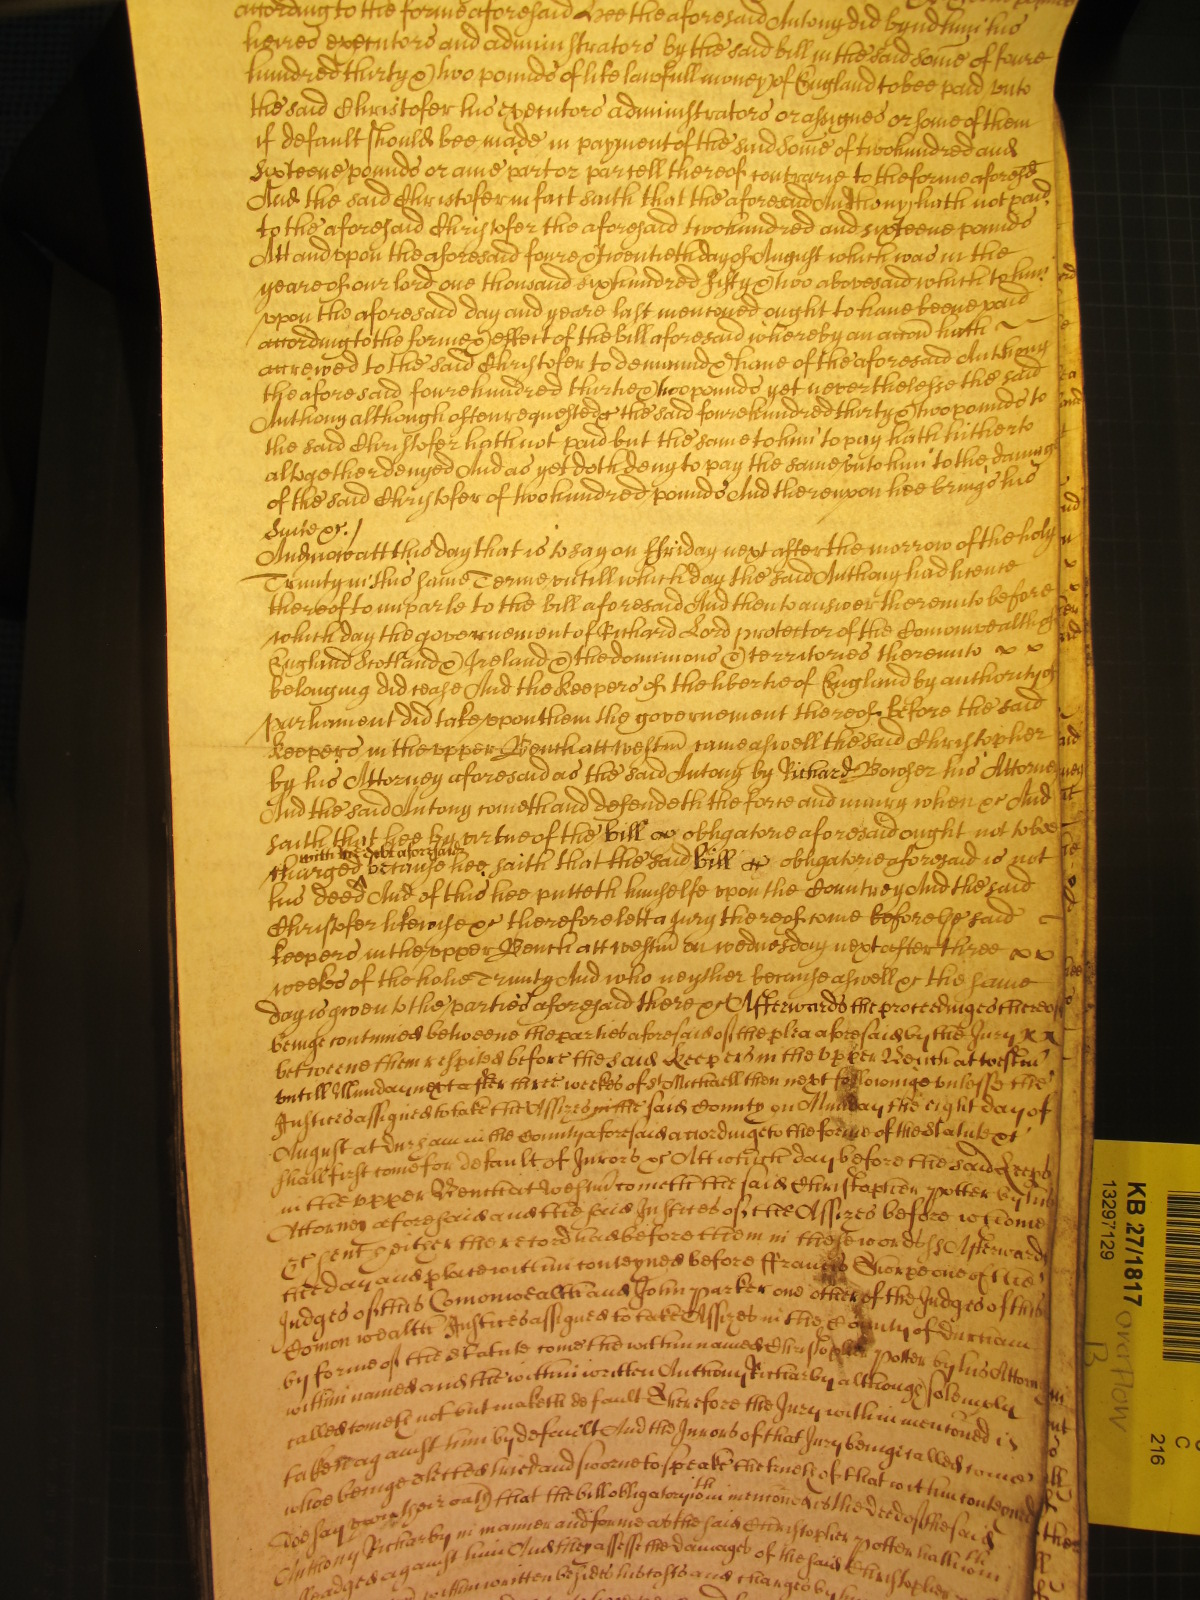 according to the forme aforesaid hee the aforesaid Antony did bynd him his
heires executors and administrators by the said bill in the said some of foure
hundred thirty & two pounds of like lawfull money of England to bee paid unto
the said Christofer his executors administrators or assignes or some of them
if default should bee made in payment of the said some of two hundred and
sixteene pounds or anie part or parcell thereof contrarie to the forme aforesd
And the said Christofer in fact saith that the aforesaid Anthony hath not paid
to the aforesaid Christofer the aforesaid two hundred and sixteene pounds
Att and upon the aforesaid foure & twentieth day of August which was in the
yeare of our lord one thousand six hundred fifty & two abovesaid which to him
upon the aforesaid day and yeare last mentoned ought to have beene paid
according to the forme & effect of the bill aforesaid whereby an accon hath
accrewed to the said Christofer to demaund & have of the aforesaid Anthony
the aforesaid foure hundred thirtie & two pounds yet neverthelesse the said
Anthony although often requested &c the said foure hundred thirty & two pounds to
the said Christofer hath not paid but the same to him to pay hath hitherto
altogether denyed And as yet doth deny to pay the same unto him to the damage
of the said Christofer of two hundred pounds And thereupon hee brings his
suite &c.
And now att this day that is to say on Ffriday next after the morrow of the holy
Trinity in this same Terme untill which day the said Anthony had licence
thereof to imparle to the bill aforesaid And then to answer thereunto before
which day the governement of Richard Lord protector of the Comonwealth of
England Scotland & Ireland & the dominions & territories thereunto x x
belonging did cease And the keepers of the libertie of England by authority of
parliament did take upon them the governement thereof before the said
Keepers in the upper Bench att westm came aswell the said Christopher
by his Attorney aforesaid as the said Antony by Richard Bowser his Attorney
And the said Antony cometh and defendeth the force and iniury when &c And
saith that hee by virtue of the bill x obligatorie aforesaid ought not to bee
with the debt aforesaid
charged because hee saith that the said bill x obligatorie aforesaid is not
his deed And of this hee putteth himselfe upon the Countrey And the said
Christofer likewise &c therefore lett a Jury thereof come before the said
keepers in the upper Bench att westm on wednesday next after three x x
weekes of the holie Trinity And who neyther because aswell &c the same
day is given to the parties aforesaid there &c Afterwards the proceedinges thereof
beinge continued betweene the parties aforesaid of the plea aforesaid by the Jury x x
betweene them respited before the said Keepers in the upper Bench at westm
untill Munday next after three weekes of st Michaell then next followinge unlesse the
Justices assigned to take the Assizes in the said County on Munday the eight day of
August at Durham in the County aforesaid accordinge to the forme of the statute &c
shall first come for default of Jurors &c Att which day before the said Keeps
in the upper Bench at westm cometh the said Christopher Potter by his
Attorney aforesaid and the said Justices of the Assizes before whome
&c sent hither the record had before them in these words ss Afterwards
the day and place within conteyned before Ffrancis Thorpe one of the
Judges of this Comonwealth and John Parker one other of the Judges of this
Comonwealth Justices assignes to take Assizes in the County of Durham
by forme of the statute come the within named Christopher Potter by his Attorn
within named and the within written Anthony Richarby although solemply
called cometh not but maketh default Therefore the Jury within mentoned is
taken against him by default And the Jurors of that Jury beinge called come
whoe beinge elected tried and sworne to speake the truth of that within conteyned
doe say upon their oath that the bill obligatory within mentoned is the deed of the said
Anthony Richarby in manner and forme as the said Christopher Potter hath
alleadged against him And they assesse the damages of the said Christopher
within written besides his costs and charges by him
KB 27/1817
13297129
overflow
B
C
216